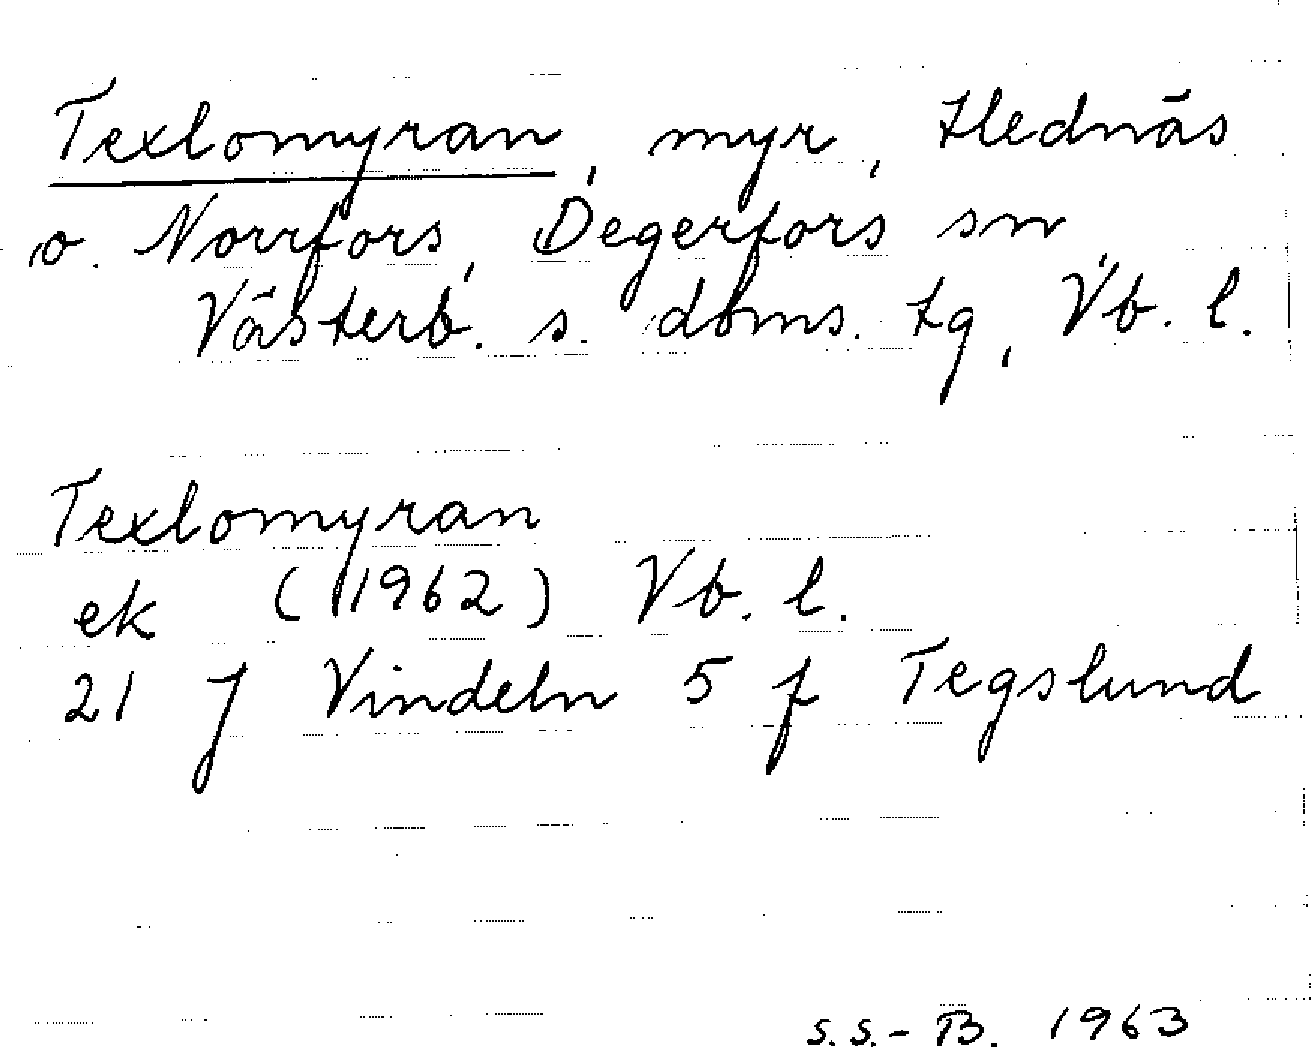 Texlomyran, myr, Hednäs
o. Norrfors, Degerfors sn
Västerb. s. doms. tg, Vb. l.
Texlomyran
ek (1962) Vb. l.
21 J Vindeln 5 f Tegslund
S.S.-B. 1963